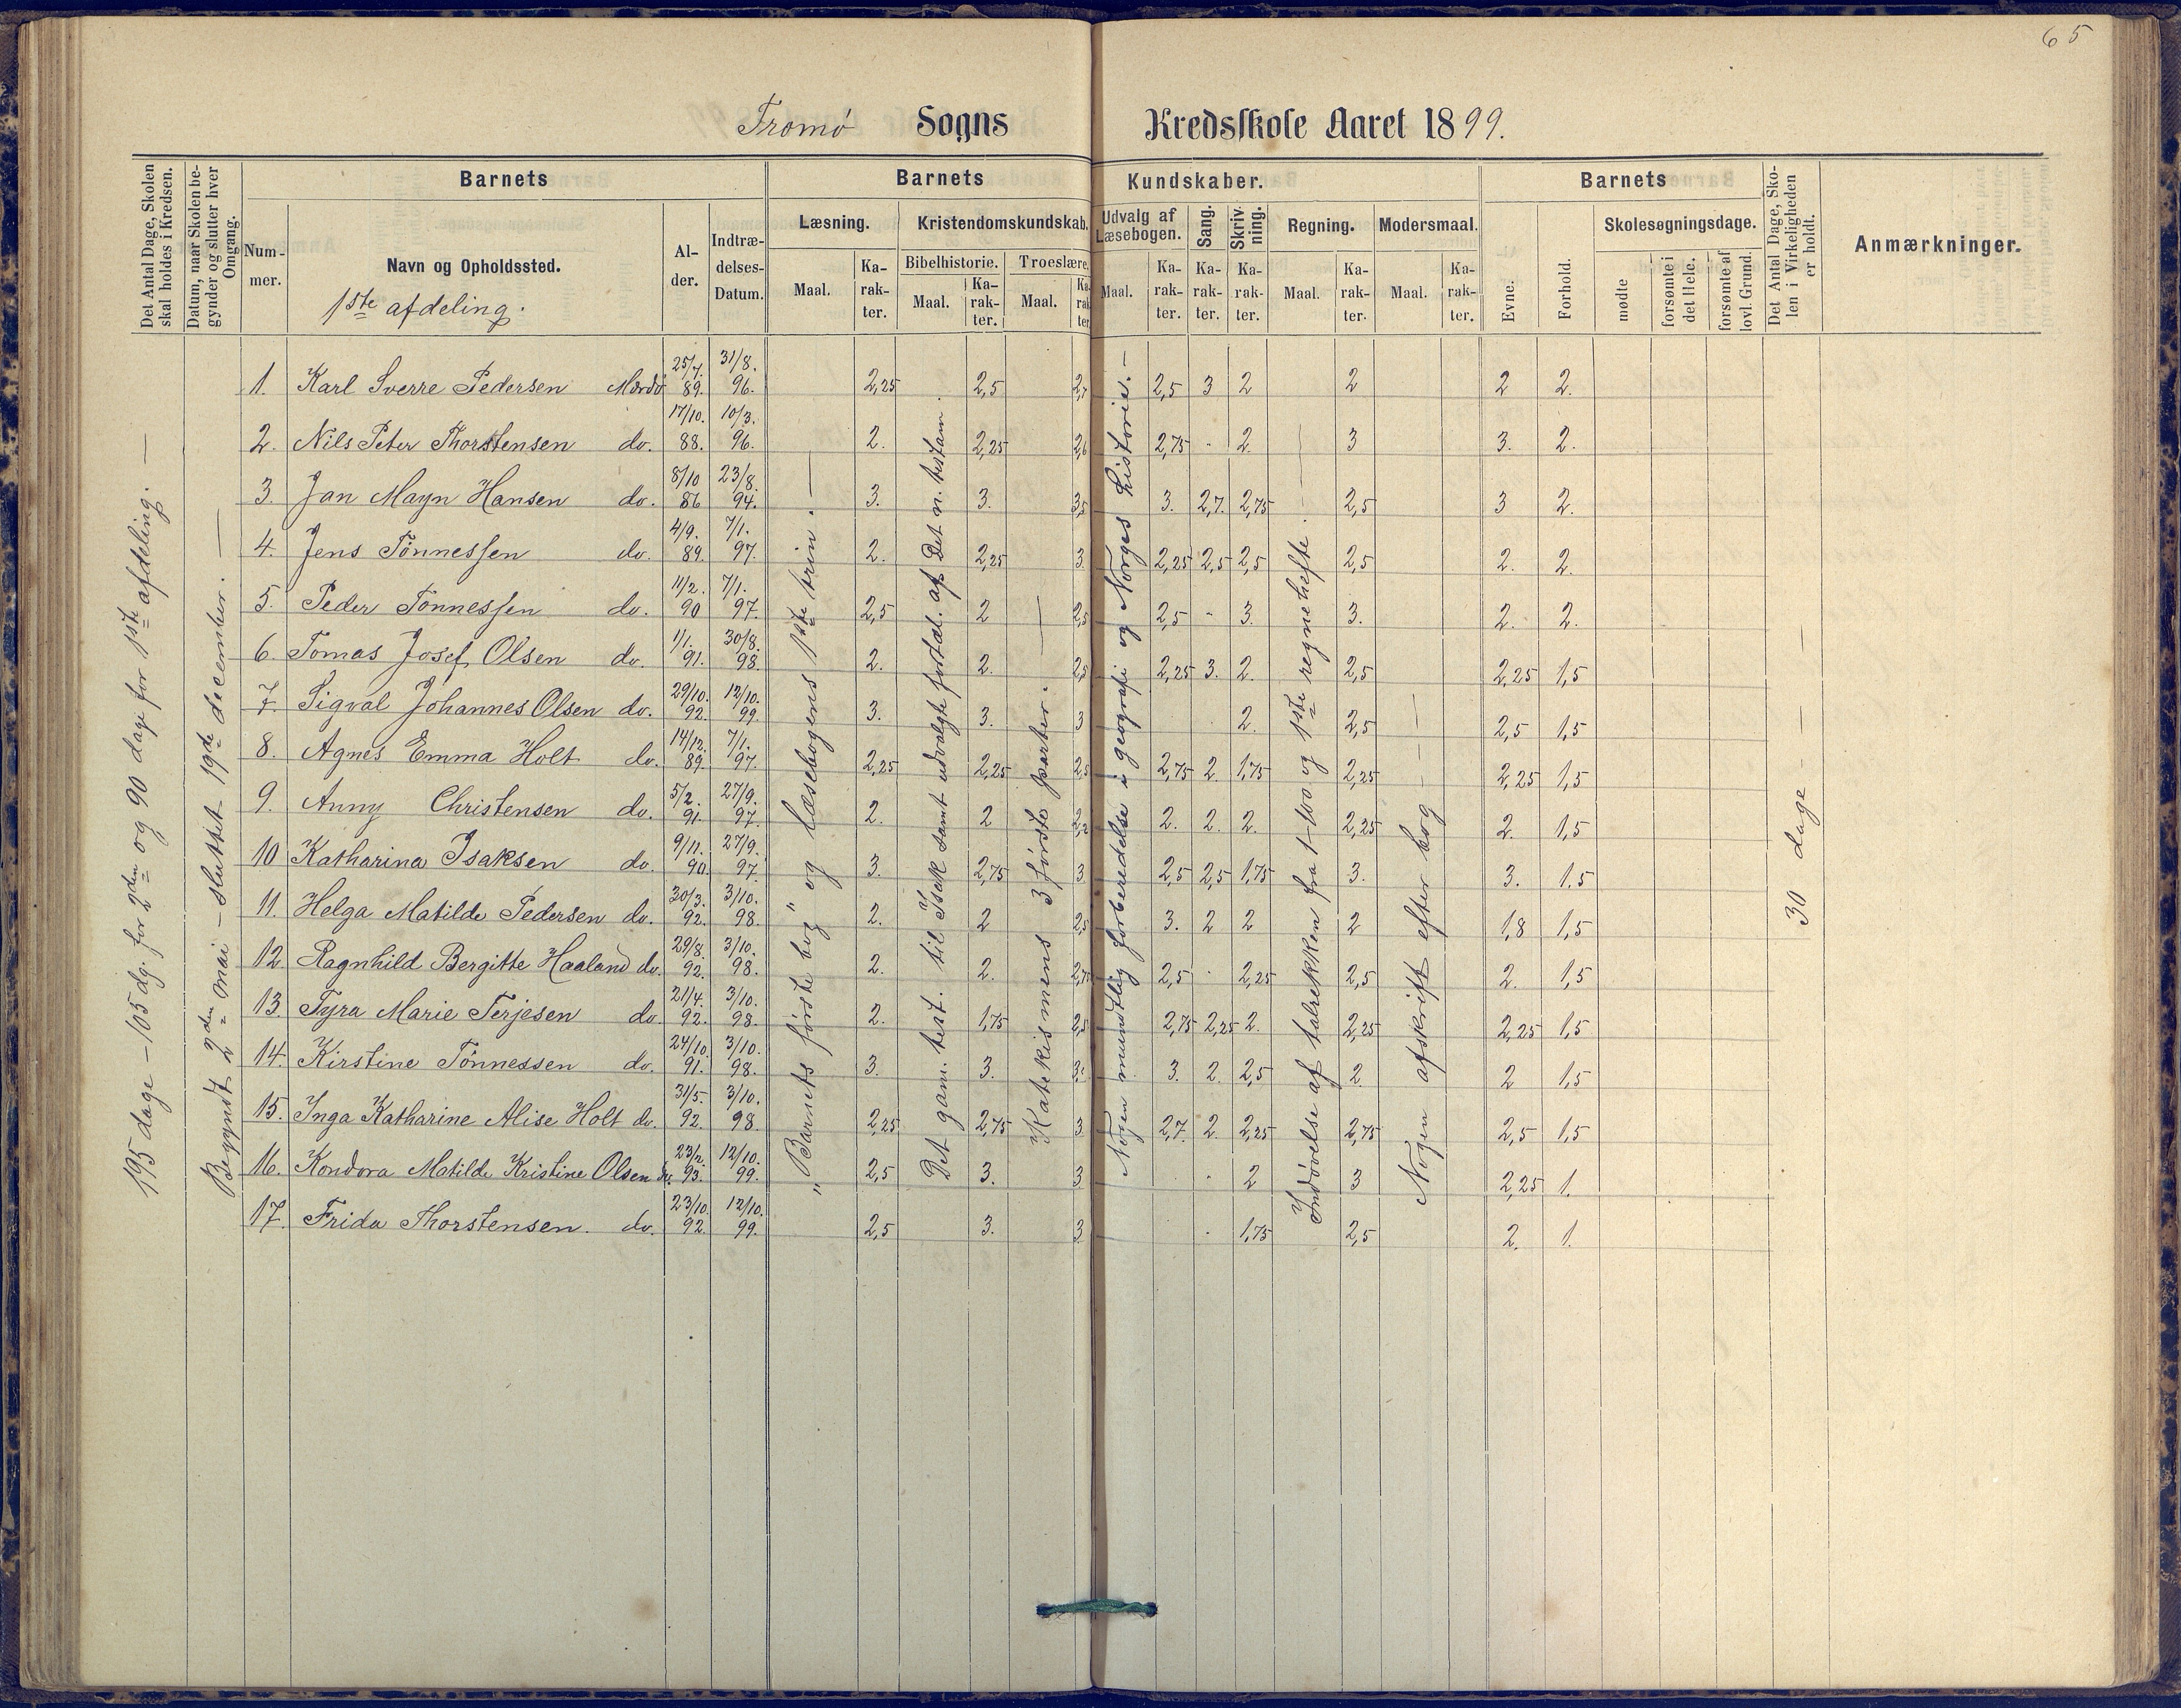 65
Tromø Sogns Kredsskole Aaret 1899.
Det Antal Dage, Skolen skal holdes i Kredsen.
Datum, naar Skolen begynder og slutter hver Omgang.
Barnets
Nummer.
Navn og Opholdssted.
1ste afdeling.
Alder.
Indtrædelses-Datum.
Barnets Kundskaber.
Læsning.
Maal.
Karakter.
Kristendomskundskab.
Bibelhistorie.
Maal.
Karakter.
Troeslære.
Maal.
Karakter.
Udvalg af Læsebogen.
Maal.
Karakter.
Sang.
Karakter.
Skrivning.
Karakter.
Regning.
Maal.
Karakter.
Modersmaal.
Maal.
Karakter.
Barnets
Evne.
Forhold.
Skolesøgningsdage.
mødte
forsømte i det Hele.
forsømte af lovl. Grund.
Det Antal Dage, Skolen i Virkeligheden er holdt.
Anmærkninger.
195 dage – 105 dg. for 2den og 90 dage for 1ste afdeling. —
Begyndt 2den mai – sluttet 19de december. —
1. Karl Sverre Pedersen Mærdø 25/7. 89. 31/8. 96. 2,25 2,5 2,7 2,5 3 2 2 2 2.
2. Nils Peter Thorstensen do. 17/10. 88. 10/3. 96. 2. 2,25 2,6 2,75 - 2. 3 3. 2.
3. Jan Mayn Hansen do. 8/10 86 23/8. 94. 3. 3. 3,5 3. 2,7. 2,75 2,5 3 2.
4. Jens Tønnessen do. 4/9. 89. 7/1. 97. 2. 2,25 3. 2,25 2,5 2,5 2,5 2. 2.
5. Peder Tønnessen do. 11/2. 90 7/1. 97. 2,5 2 2,5 2,5 - 3. 3. 2. 2.
6. Tomas Josef Olsen do. 1/1. 91. 30/8. 98. 2. 2. 2,5 2,25 3. 2. 2,5 2,25 1,5
7. Sigval Johannes Olsen do. 29/10. 92. 12/10. 99. 3. 3. 3 2. 2,5 2,5 1,5
8. Agnes Emma Holt do. 14/12. 89. 7/1. 97. 2,25 2,25 2,5 2,75 2. 1,75 2,25 2,25 1,5
9. Anny Christensen do. 5/2. 91. 27/9. 97. 2. 2 2,2 2. 2. 2. 2,25 2. 1,5
10 Katharina Isaksen do. 9/11. 90. 27/9. 97. 3. 2,75 3 2,5 2,5 1,75 3. 3. 1.5
11. Helga Matilde Pedersen do. 30/3. 92. 3/10. 98. 2. 2 2,5 3. 2 2 2 1,8 1,5
12. Ragnhild Bergitte Haaland do. 29/8. 92. 3/10. 98. 2. 2. 2,75 2,5 - 2,25 2,5 2. 1,5
13. Tyra Marie Terjesen do. 21/4. 92. 3/10. 98. 2. 1,75 2,5 2,75 2,25 2. 2,25 2,25 1,5
14. Kirstine Tønnessen do. 24/10. 91. 3/10. 98. 3. 3. 3. 2. 2,5 2. 2 1,5
15. Inga Katharine Alise Holt do. 31/5. 92. 3/10. 98. 2,25 2,75 3 2,7. 2. 2,25 2,75 2,5 1,5
16. Kondora Matilde Kristine Olsen do. 23/2. 93. 12/10. 99. 2,5 3. 3 - 2 3 2,25 1.
17. Frida Thorstensen. do. 23/10. 92. 12/10. 99. 2,5 3. 3 - 1,75 2,5 2. 1.
"Barnets første bog" og læsebogens 1ste trin. —
Det gam. test. til Isak samt udvalgte fortæl. af Det n. testam.
Katekismens 3 første parter. —
Nogen mundtlig forberedelse i geografi og Norges historie. —
Indøvelse af talrekken fra 1-100 og 1ste regnehefte. —
Nogen afskrift efter bog — —
30 dage — — —